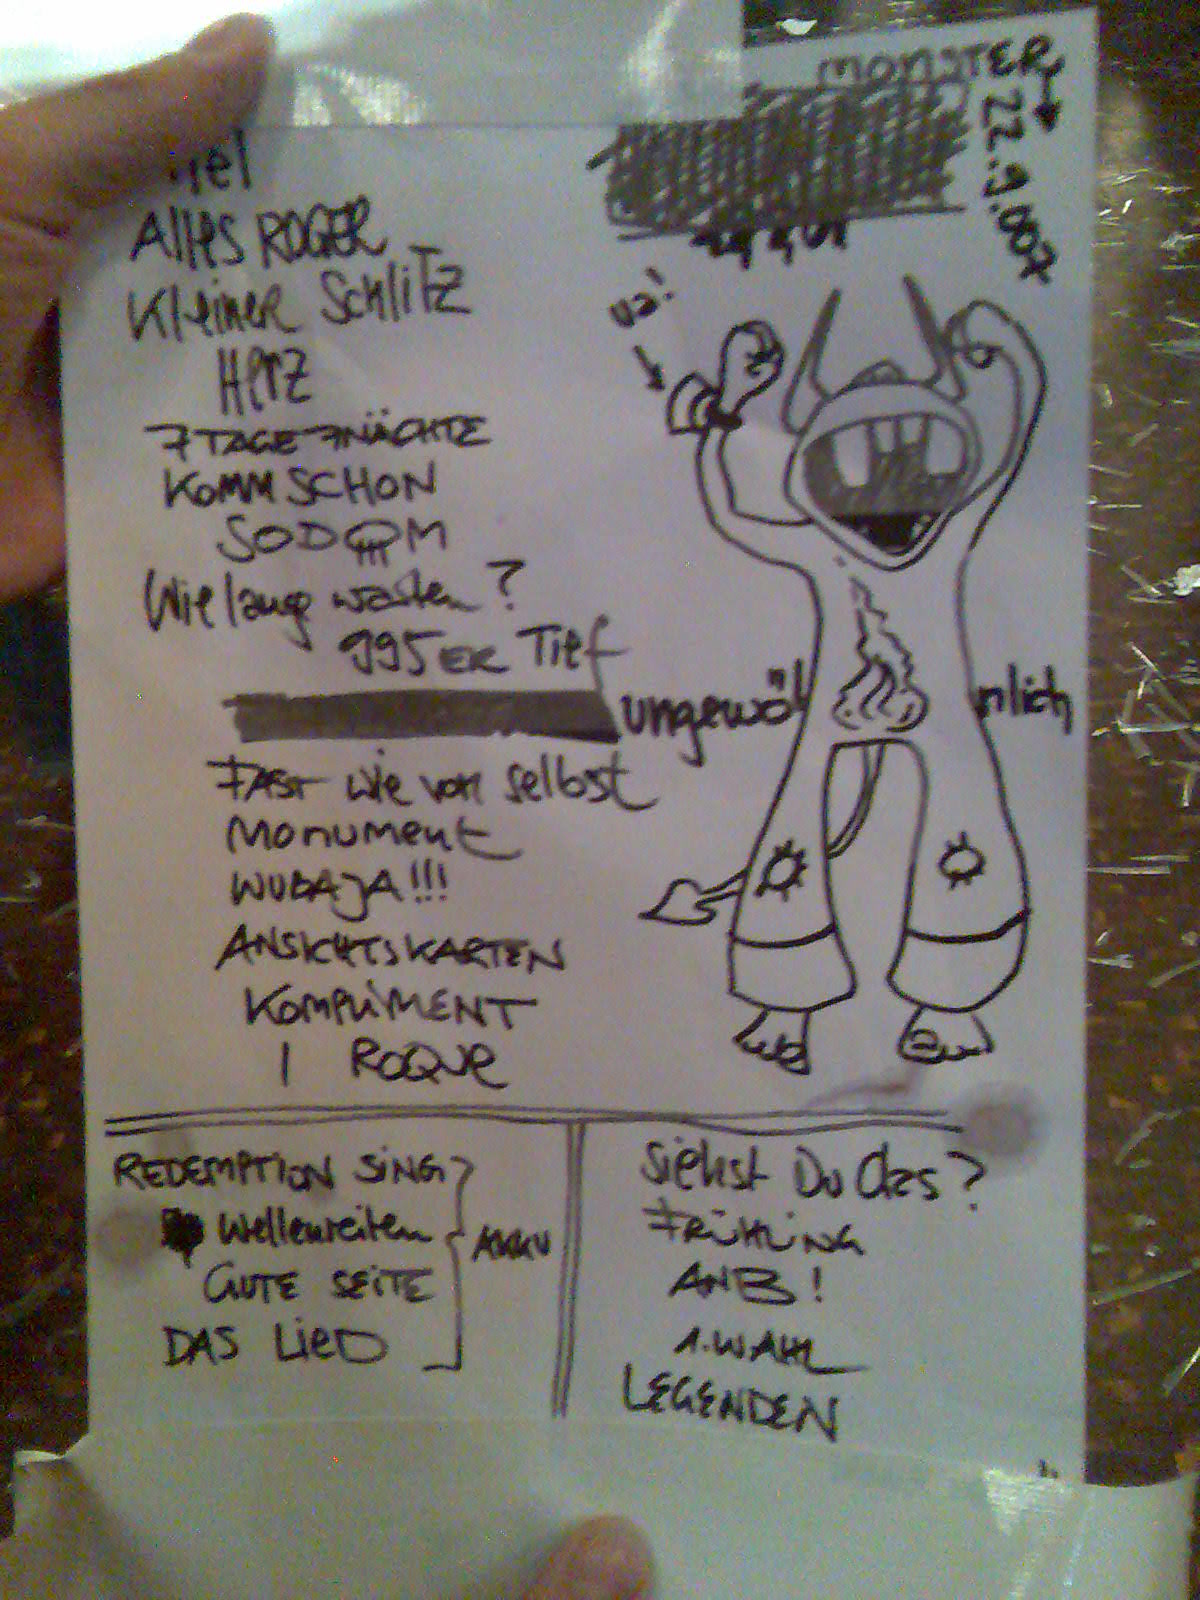 MONSTER
22.9.007
Alles ROGER
Kleiner Schlitz
Herz
7 TAGE 7 NÄCHTE
KOMM SCHON
SODOM
Wie lang warten?
995ER Tief
ungewöhnlich
FAST wie von selbst
Monument
WUBAJA!!!
ANSICHTSKARTEN
KOMPLIMENT
1 ROQUE
REDEMPTION SING
Wellenreiten
GUTE SEITE
DAS LIED
AKKU
Siehst Du das?
FRÜHLING
ANB!
1. WAHL
LEGENDEN